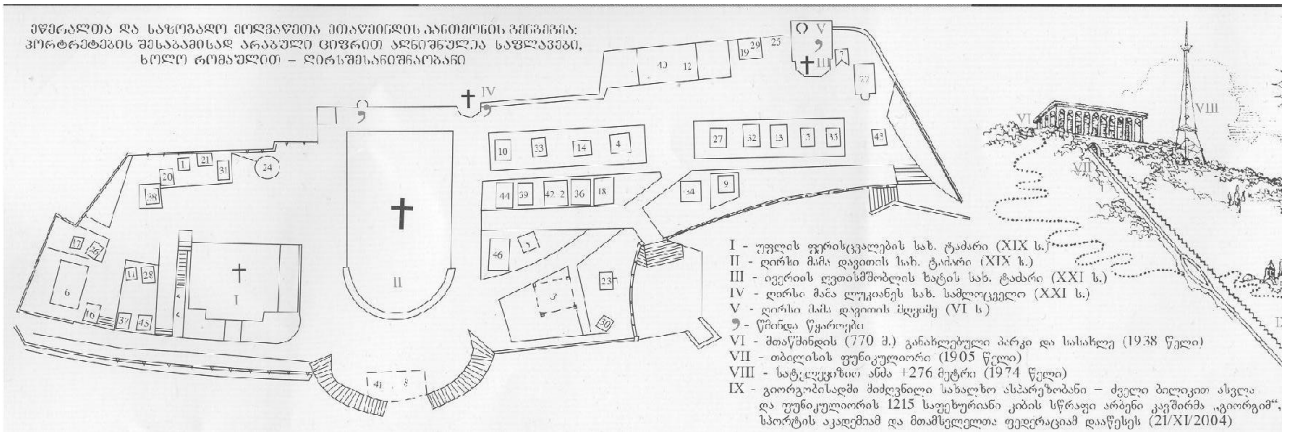 მწერალთა და საზოგადო მოღვაწეთა მთაწმინდის პანთეონის გენგეგმა:
პორტრეტების შესაბამისად არაბული ციფრით აღნიშნულია საფლავები,
ხოლო რომაულით – ღირსშესანიშნაობანი
V
III
IV
29
19
25
12
22
43
10
33
14
4
27
32
13
35
1
21
20
31
24
38
44
39
42
2
36
18
34
9
17
26
46
23
11
28
6
16
37
45
I
II
30
41
8
VI
VII
VIII
I - უფლის ფერისცვალების სახ. ტაძარი (XIX ს.)
II - ღირსი მამა დავითის სახ. ტაძარი (XIX ს.)
III - ივერიის ღვთისმშობლის ხატის სახ. ტაძარი (XXI ს.)
IV - ღირსი მამა ლუკიანეს სახ. სამლოცველო (XXI ს.)
V - ღირსი მამა დავითის მღვიმე (VI ს.)
- წმინდა წყაროები
VI - მთაწმინდის (770 მ.) განახლებული პარკი და სასახლე (1938 წელი)
VII - თბილისის ფუნიკულიორი (1905 წელი)
VIII - სატელევიზიო ანძა +276 მეტრი (1974 წელი)
IX - გიორგობისადმი მიძღვნილი სახალხო ასპარეზობანი – ძველი ბილიკით ასვლა
და ფუნიკულიორის 1215 საფეხურიანი კიბის სწრაფი არბენი კავშირმა „გიორგიმ“,
სპორტის აკადემიამ და მთამსვლელთა ფედერაციამ დააწესეს (21/XI/2004)